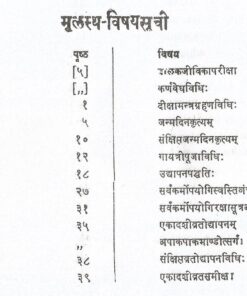 मूलस्थ-विषयसूची
पृष्ठ विषय
[५] बालकजीविकापरीक्षा
[,,] कर्णवेधविधिः
१ दीक्षामन्त्रग्रहणविधिः
५ जन्मदिनकृत्यम्
१० संक्षिप्तजन्मदिनकृत्यम्
१२ गायत्रीपूजाविधिः
१८ उद्यापनपद्धतिः
२७ सर्वकर्मोपयोगिस्वस्ति
३१ सर्वकर्मोपयोगिरक्षासूत्र
३५ एकादशीव्रतोद्यापनम्
,, अपाकपाकभाण्डोत्सर्गः
३८ संक्षिप्तव्रतोद्यापनविधिः
३९ एकादशीव्रतसमीक्षा